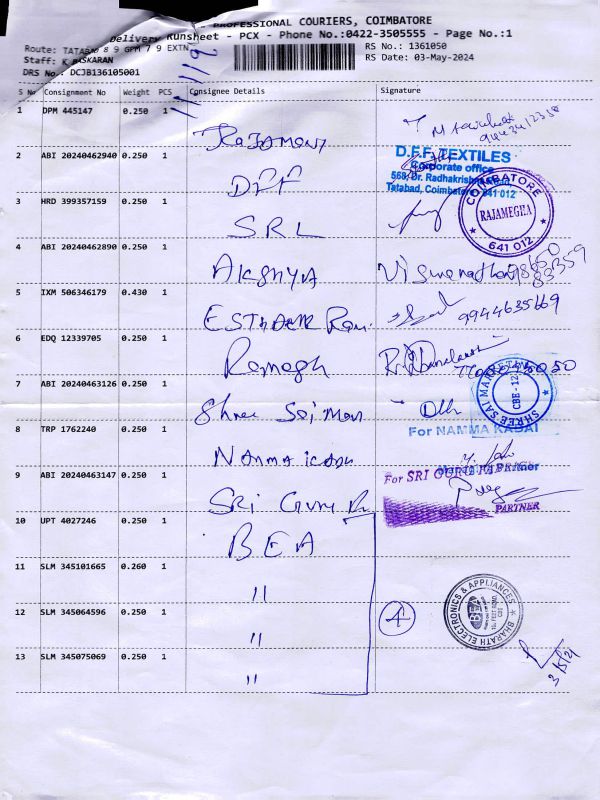 PROFESSIONAL COURIERS, COIMBATORE
Delivery Runsheet - PCX - Phone No.:0422-3505555 - Page No.:1
Route: TATABAD 8 9 GPM 7 9 EXTN
RS No.: 1361050
Staff: K BASKARAN
RS Date: 03-May-2024
DRS No.: DCJB136105001
S No Consignment No Weight PCS Consignee Details Signature
1 DPM 445147 0.250 1
9443412338
2 ABI 20240462940 0.250 1 DFF
D.F.F. TEXTILES
Corporate office
568, Dr. Radhakrishnan
Tatabad, Coimbatore 641 012
3 HRD 399357159 0.250 1 SRL
COIMBATORE
RAJAMEGHA
641 012
4 ABI 20240462890 0.250 1 AKSHYA Viswanathan 98650
83359
5 IXM 506346179 0.430 1 9944635669
6 EDQ 12339705 0.250 1 Ramesh
7 ABI 20240463126 0.250 1 Shree Sai Man
SHREE SAI MARKETING
CBE - 12
8 TRP 1762240 0.250 1
For NAMMA KADAI
9 ABI 20240463147 0.250 1 SRI Guru
For SRI GURU
PARTNER
10 UPT 4027246 0.250 1 BEA
11 SLM 345101665 0.260 1 "
BHARATH ELECTRONICS & APPLIANCES
BEA
12 SLM 345064596 0.250 1 "
4
13 SLM 345075069 0.250 1 "